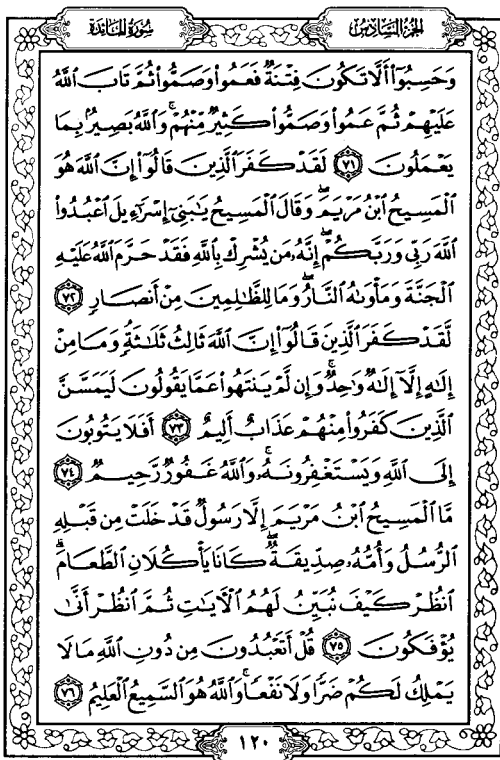 سُورَةُ المَائِدَةِ
الجُزْءُ السَّادِسُ
وَحَسِبُوٓاْ أَلَّا تَكُونَ فِتۡنَةٞ فَعَمُواْ وَصَمُّواْ ثُمَّ تَابَ ٱللَّهُ
عَلَيۡهِمۡ ثُمَّ عَمُواْ وَصَمُّواْ كَثِيرٞ مِّنۡهُمۡۚ وَٱللَّهُ بَصِيرُۢ بِمَا
يَعۡمَلُونَ ٧١ لَقَدۡ كَفَرَ ٱلَّذِينَ قَالُوٓاْ إِنَّ ٱللَّهَ هُوَ
ٱلۡمَسِيحُ ٱبۡنُ مَرۡيَمَۖ وَقَالَ ٱلۡمَسِيحُ يَٰبَنِيٓ إِسۡرَٰٓءِيلَ ٱعۡبُدُواْ
ٱللَّهَ رَبِّي وَرَبَّكُمۡۖ إِنَّهُۥ مَن يُشۡرِكۡ بِٱللَّهِ فَقَدۡ حَرَّمَ ٱللَّهُ عَلَيۡهِ
ٱلۡجَنَّةَ وَمَأۡوَىٰهُ ٱلنَّارُۖ وَمَا لِلظَّٰلِمِينَ مِنۡ أَنصَارٖ ٧٢
لَّقَدۡ كَفَرَ ٱلَّذِينَ قَالُوٓاْ إِنَّ ٱللَّهَ ثَالِثُ ثَلَٰثَةٖۘ وَمَا مِنۡ
إِلَٰهٍ إِلَّآ إِلَٰهٞ وَٰحِدٞۚ وَإِن لَّمۡ يَنتَهُواْ عَمَّا يَقُولُونَ لَيَمَسَّنَّ
ٱلَّذِينَ كَفَرُواْ مِنۡهُمۡ عَذَابٌ أَلِيمٌ ٧٣ أَفَلَا يَتُوبُونَ
إِلَى ٱللَّهِ وَيَسۡتَغۡفِرُونَهُۥۚ وَٱللَّهُ غَفُورٞ رَّحِيمٞ ٧٤
مَّا ٱلۡمَسِيحُ ٱبۡنُ مَرۡيَمَ إِلَّا رَسُولٞ قَدۡ خَلَتۡ مِن قَبۡلِهِ
ٱلرُّسُلُ وَأُمُّهُۥ صِدِّيقَةٞۖ كَانَا يَأۡكُلَانِ ٱلطَّعَامَۗ
ٱنظُرۡ كَيۡفَ نُبَيِّنُ لَهُمُ ٱلۡأٓيَٰتِ ثُمَّ ٱنظُرۡ أَنَّىٰ
يُؤۡفَكُونَ ٧٥ قُلۡ أَتَعۡبُدُونَ مِن دُونِ ٱللَّهِ مَا لَا
يَمۡلِكُ لَكُمۡ ضَرّٗا وَلَا نَفۡعٗاۚ وَٱللَّهُ هُوَ ٱلسَّمِيعُ ٱلۡعَلِيمُ ٧٦
١٢٠